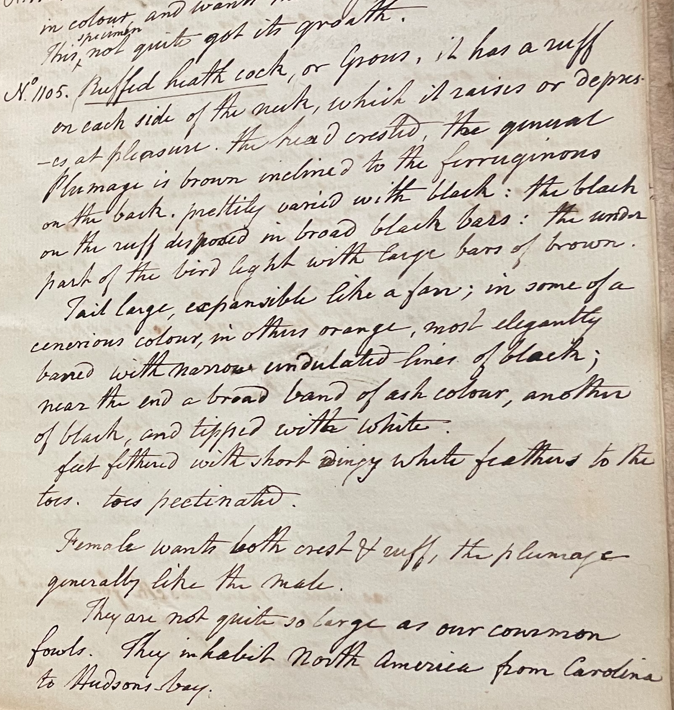 in colour, and wants
This specimen not quite got its growth.
No. 1105. Ruffed heath cock, or Grous, it has a ruff
on each side of the neck, which it raises or depres-
-es at pleasure. the head crested, the general
Plumage is brown inclined to the ferruginous
on the back. prettily varied with black: the black
on the ruff disposed in broad black bars: the under
part of the bird light with large bars of brown.
Tail large, expansible like a fan; in some of a
cenerious colour, in others orange, most elegantly
barred with narrow undulated lines of black;
near the end a broad band of ash colour, another
of black, and tipped with white.
feet fethered with short dingy white feathers to the
toes. toes pectinated.
Female wants both crest & ruff, the plumage
generally like the male.
They are not quite so large as our common
fowls. They inhabit North America from Carolina
to Hudsons-bay.